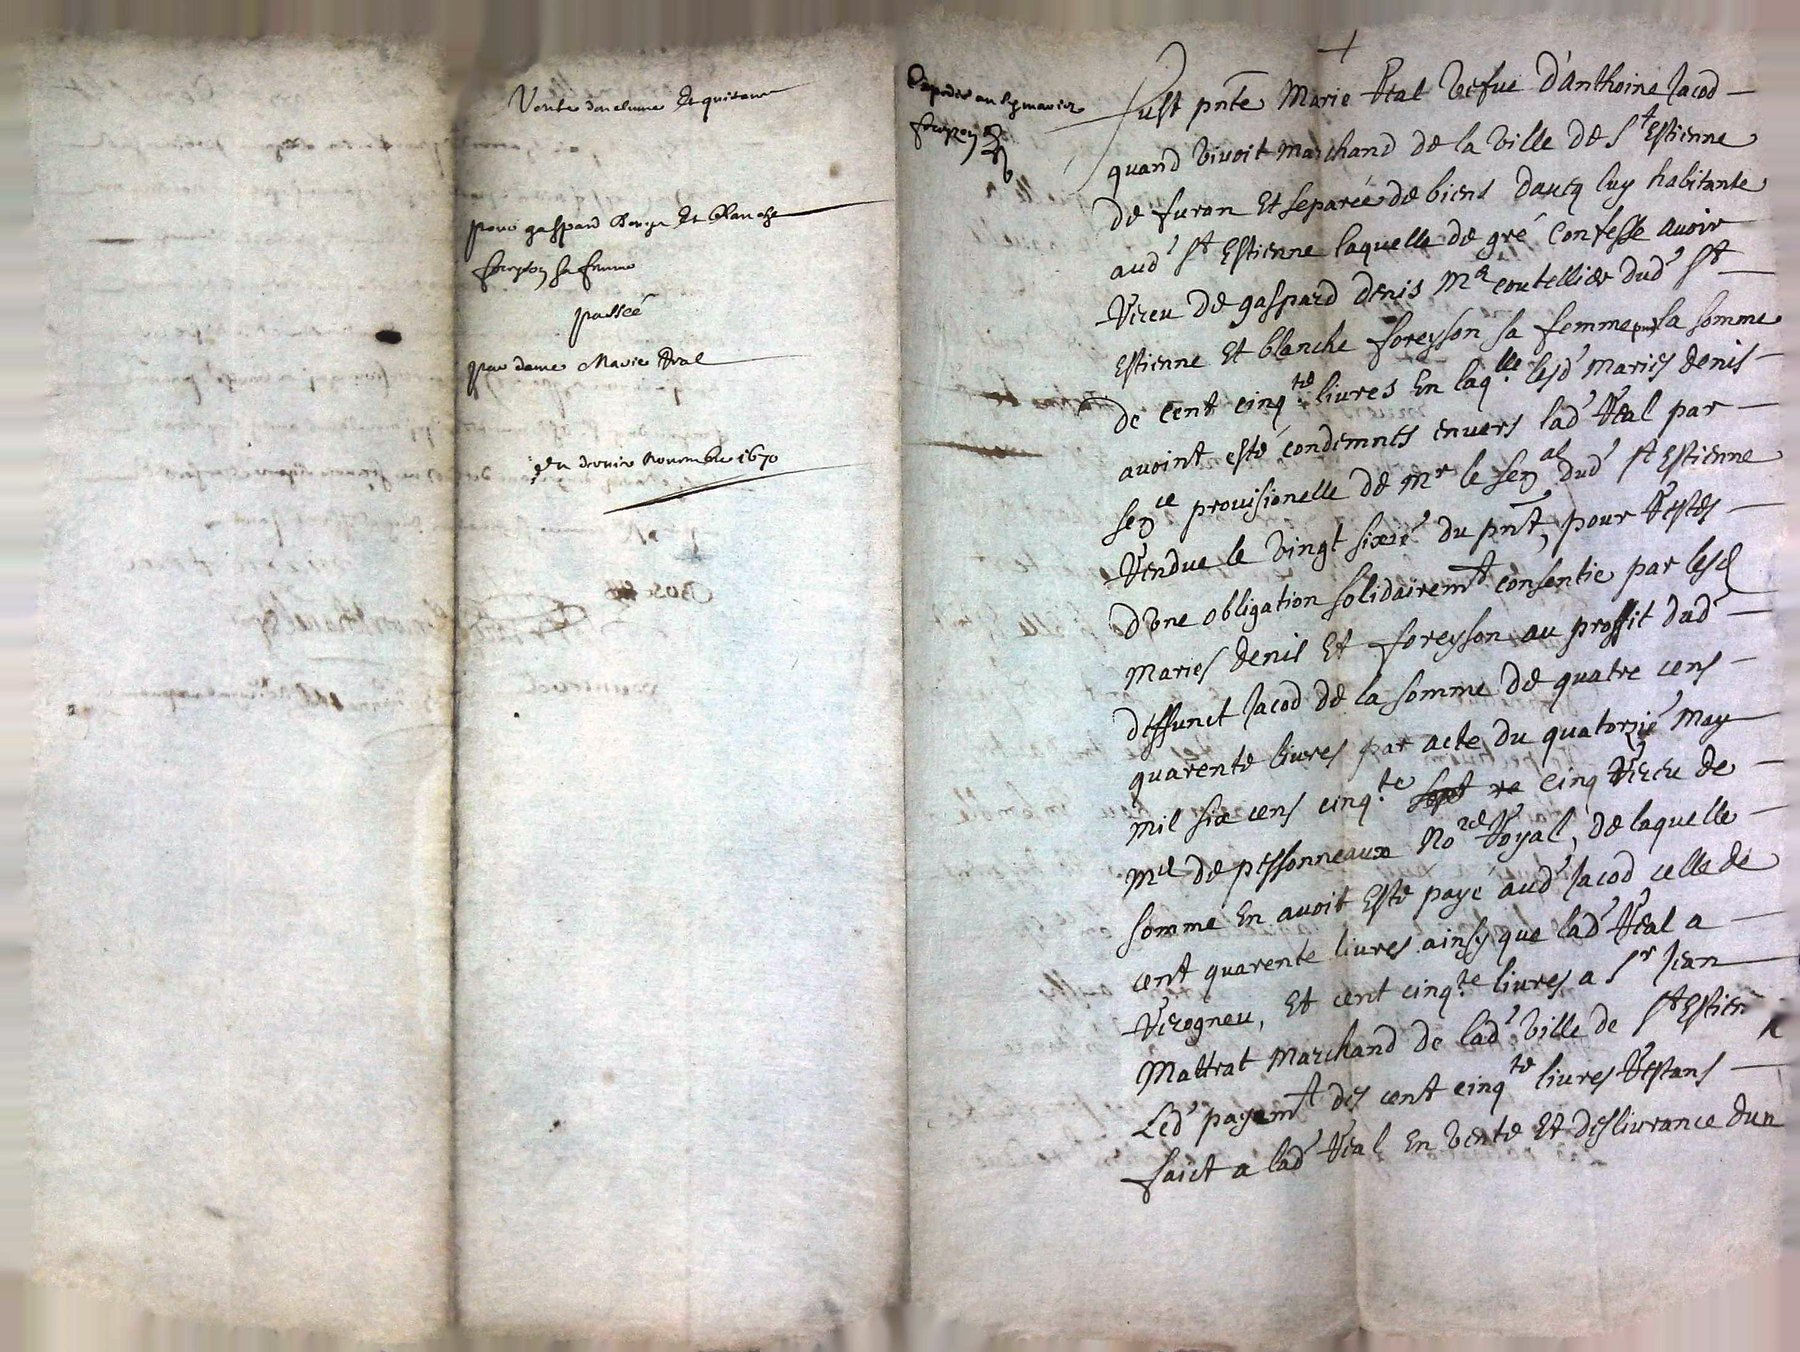 Vente d'enclume Et quitance
pour gaspard Et blanche
foreyson sa femme
passée
par dame Marie Real
du dernier Novembre 1670
foreyson
Fust pnte Marie Real vefve d'Anthoine Jacod
quand vivoit Marchand de la ville de St Estienne
de furan Et separée de biens davecq luy habitante
aud' St Estienne laquelle de gré Confesse avoir
Receu de gaspard denis Me coutellier dud' St
Estienne Et blanche foreyson sa femme la somme
de cent cinqte livres En laqlle lesd' Maries denis
avoint esté condemnés envers lad' Real par
sence provisionelle de Mr le senal dud' St Estienne
Rendue le vingt sixie' du pnt, pour Restes
d'une obligation solidairemt consentie par lesd
Maries denis Et foreyson au proffit dud'
deffunct Jacod de la somme de quatre cens
quarente livres par acte du quatorzie' May
mil six cens cinqte sept re cinq Receu de
Me de pessonneaux Nore Royal, de laquelle
somme En avoit Esté payé aud' Jacod celle de
cent quarente livres ainsy que lad' Real a
Recogneu, Et cent cinqte livres a Sr Jean
Mattrat Marchand de lad' ville de St Estien
Led' payemt des cent cinqte livres Restans
faict a lad' Real En vente Et deslivrance dun